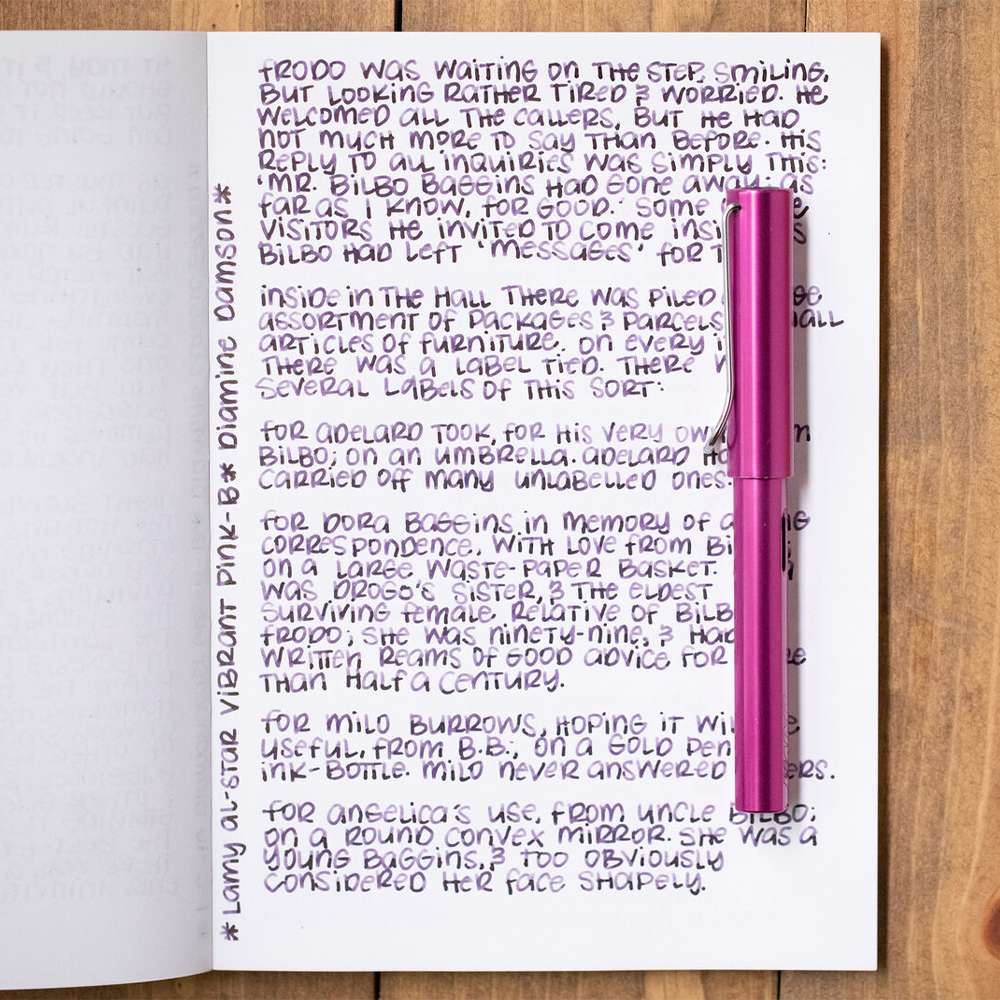 FRODO WAS WAITING ON THE STEP, SMILING,
BUT LOOKING RATHER TIRED & WORRIED. HE
WELCOMED ALL THE CALLERS, BUT HE HAD
NOT MUCH MORE TO SAY THAN BEFORE. HIS
REPLY TO ALL INQUIRIES WAS SIMPLY THIS:
'MR. BILBO BAGGINS HAD GONE AWAY; AS
FAR AS I KNOW, FOR GOOD.' SOME
VISITORS HE INVITED TO COME
BILBO HAD LEFT 'MESSAGES' FOR
INSIDE IN THE HALL THERE WAS PILED
ASSORTMENT OF PACKAGES & PARCELS
ARTICLES OF FURNITURE. ON EVERY
THERE WAS A LABEL TIED. THERE
SEVERAL LABELS OF THIS SORT:
FOR ADELARD TOOK, FOR HIS VERY
BILBO; ON AN UMBRELLA. ADELARD
CARRIED OFF MANY UNLABELLED ONES.
FOR DORA BAGGINS IN MEMORY OF A
CORRESPONDENCE, WITH LOVE FROM
ON A LARGE WASTE-PAPER BASKET.
WAS DROGO'S SISTER, & THE ELDEST
SURVIVING FEMALE RELATIVE OF
FRODO; SHE WAS NINETY-NINE, & HAD
WRITTEN REAMS OF GOOD ADVICE FOR
THAN HALF A CENTURY.
FOR MILO BURROWS, HOPING IT
USEFUL, FROM B.B.; ON A GOLD PEN
INK-BOTTLE. MILO NEVER ANSWERED
FOR ANGELICA'S USE, FROM UNCLE BILBO;
ON A ROUND CONVEX MIRROR. SHE WAS A
YOUNG BAGGINS, & TOO OBVIOUSLY
CONSIDERED HER FACE SHAPELY.
*LAMY AL-STAR VIBRANT PINK-B* DIAMINE DAMSON*